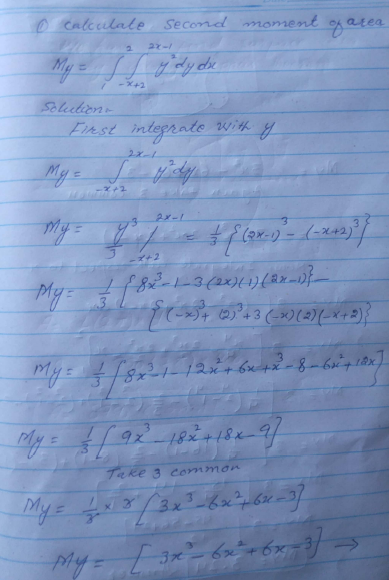 ① calculate second moment of area
My = ∫₁² ∫₋ₓ₊₂²ˣ⁻¹ y² dy dx
Solution-
First integrate with y
My = ∫₋ₓ₊₂²ˣ⁻¹ y² dy
My = y³/3 /₋ₓ₊₂²ˣ⁻¹ = 1/3 {(2x-1)³ - (-x+2)³}
My = 1/3 [8x³-1-3(2x)(1)(2x-1)} -
{(-x)³+(2)³+3(-x)(2)(-x+2)}
My = 1/3 [8x³-1-12x²+6x+x³-8-6x²+12x]
My = 1/3 [9x³-18x²+18x-9]
Take 3 common
My = 1/3 × 3 [3x³-6x²+6x-3]
My = [3x³-6x²+6x-3] →